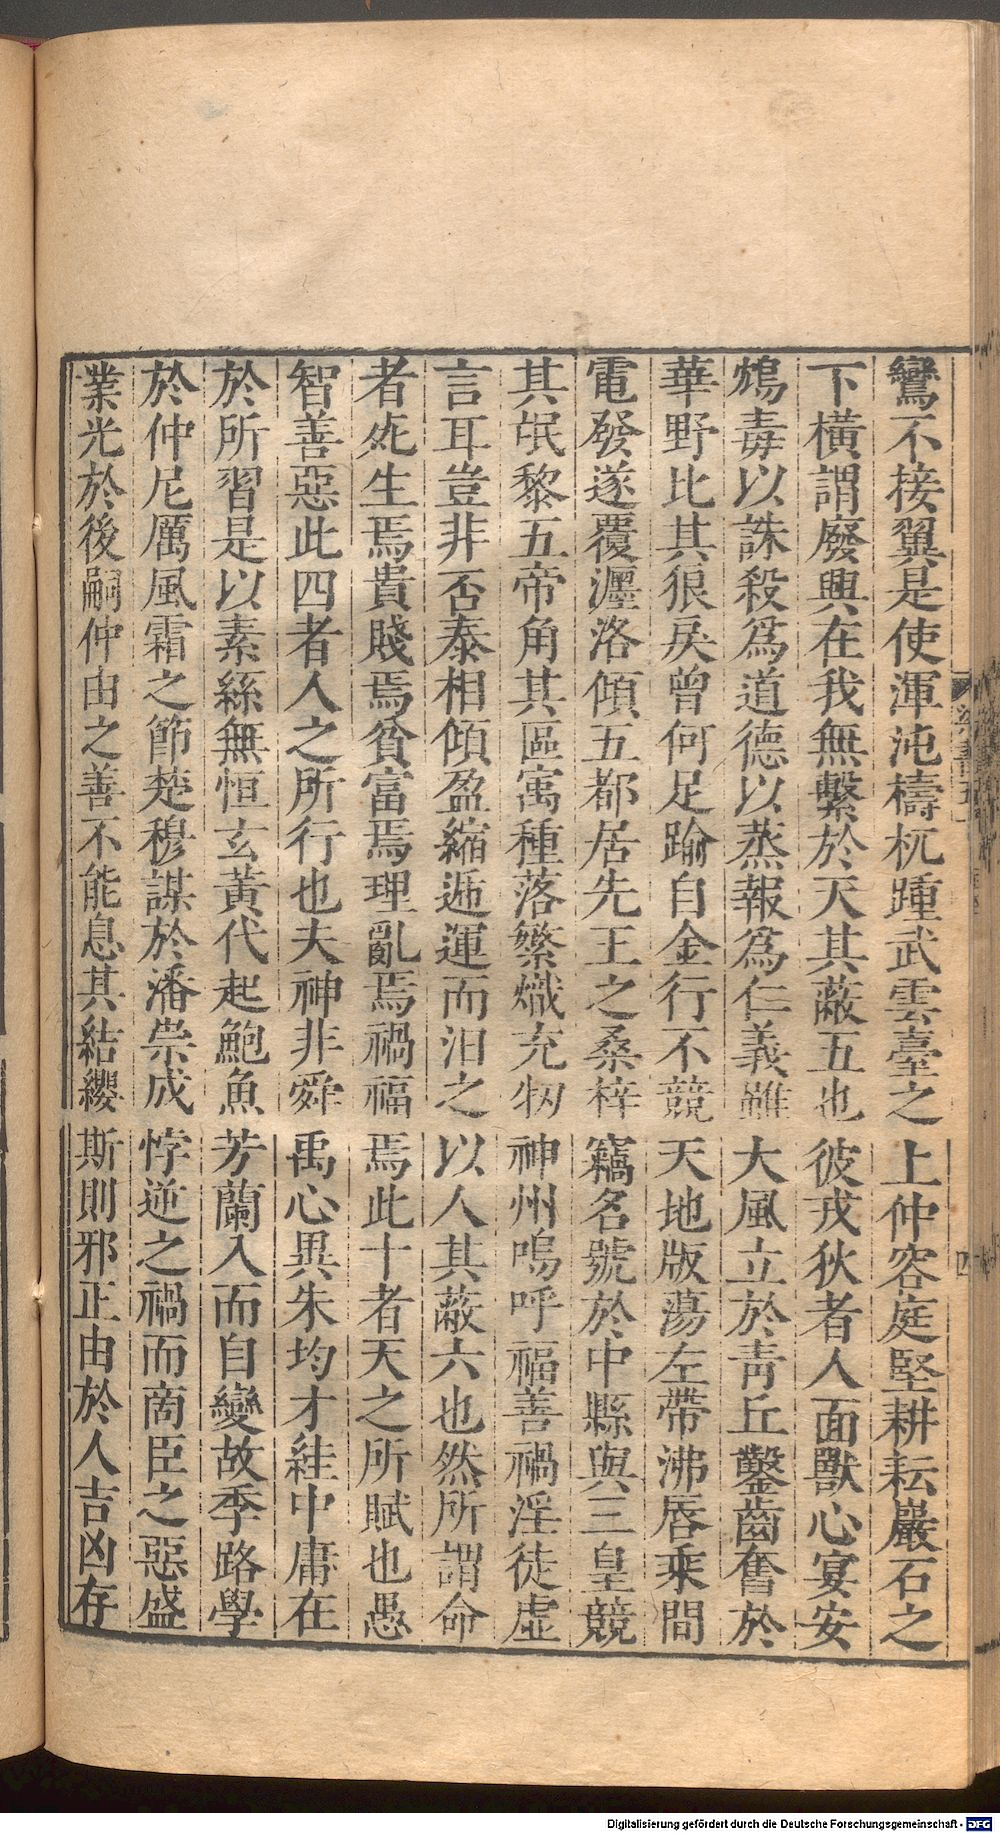 鸞不接翼是使渾沌檮杌踵武雲臺之上仲容庭堅耕耘巖石之
下橫謂廢興在我無繫於天其蔽五也彼戎狄者人面獸心宴安
鴆毒以誅殺爲道德以蒸報爲仁義雖大風立於青丘鑿齒奮於
華野比其狼戾曾何足踰自金行不競天地版蕩左帶沸脣乘間
電發遂覆瀍洛傾五都居先王之桑梓竊名號於中縣與三皇競
其氓黎五帝角其區寓種落繁熾充牣神州嗚呼福善禍淫徒虛
言耳豈非否泰相傾盈縮遞運而汨之以人其蔽六也然所謂命
者死生焉貴賤焉貧富焉理亂焉禍福焉此十者天之所賦也愚
智善惡此四者人之所行也夫神非舜禹心異朱均才絓中庸在
於所習是以素絲無恒玄黃代起鮑魚芳蘭入而自變故季路學
於仲尼厲風霜之節楚穆謀於潘崇成悖逆之禍而商臣之惡盛
業光於後嗣仲由之善不能息其結纓斯則邪正由於人吉凶存
Digitalisierung gefördert durch die Deutsche Forschungsgemeinschaft - DFG